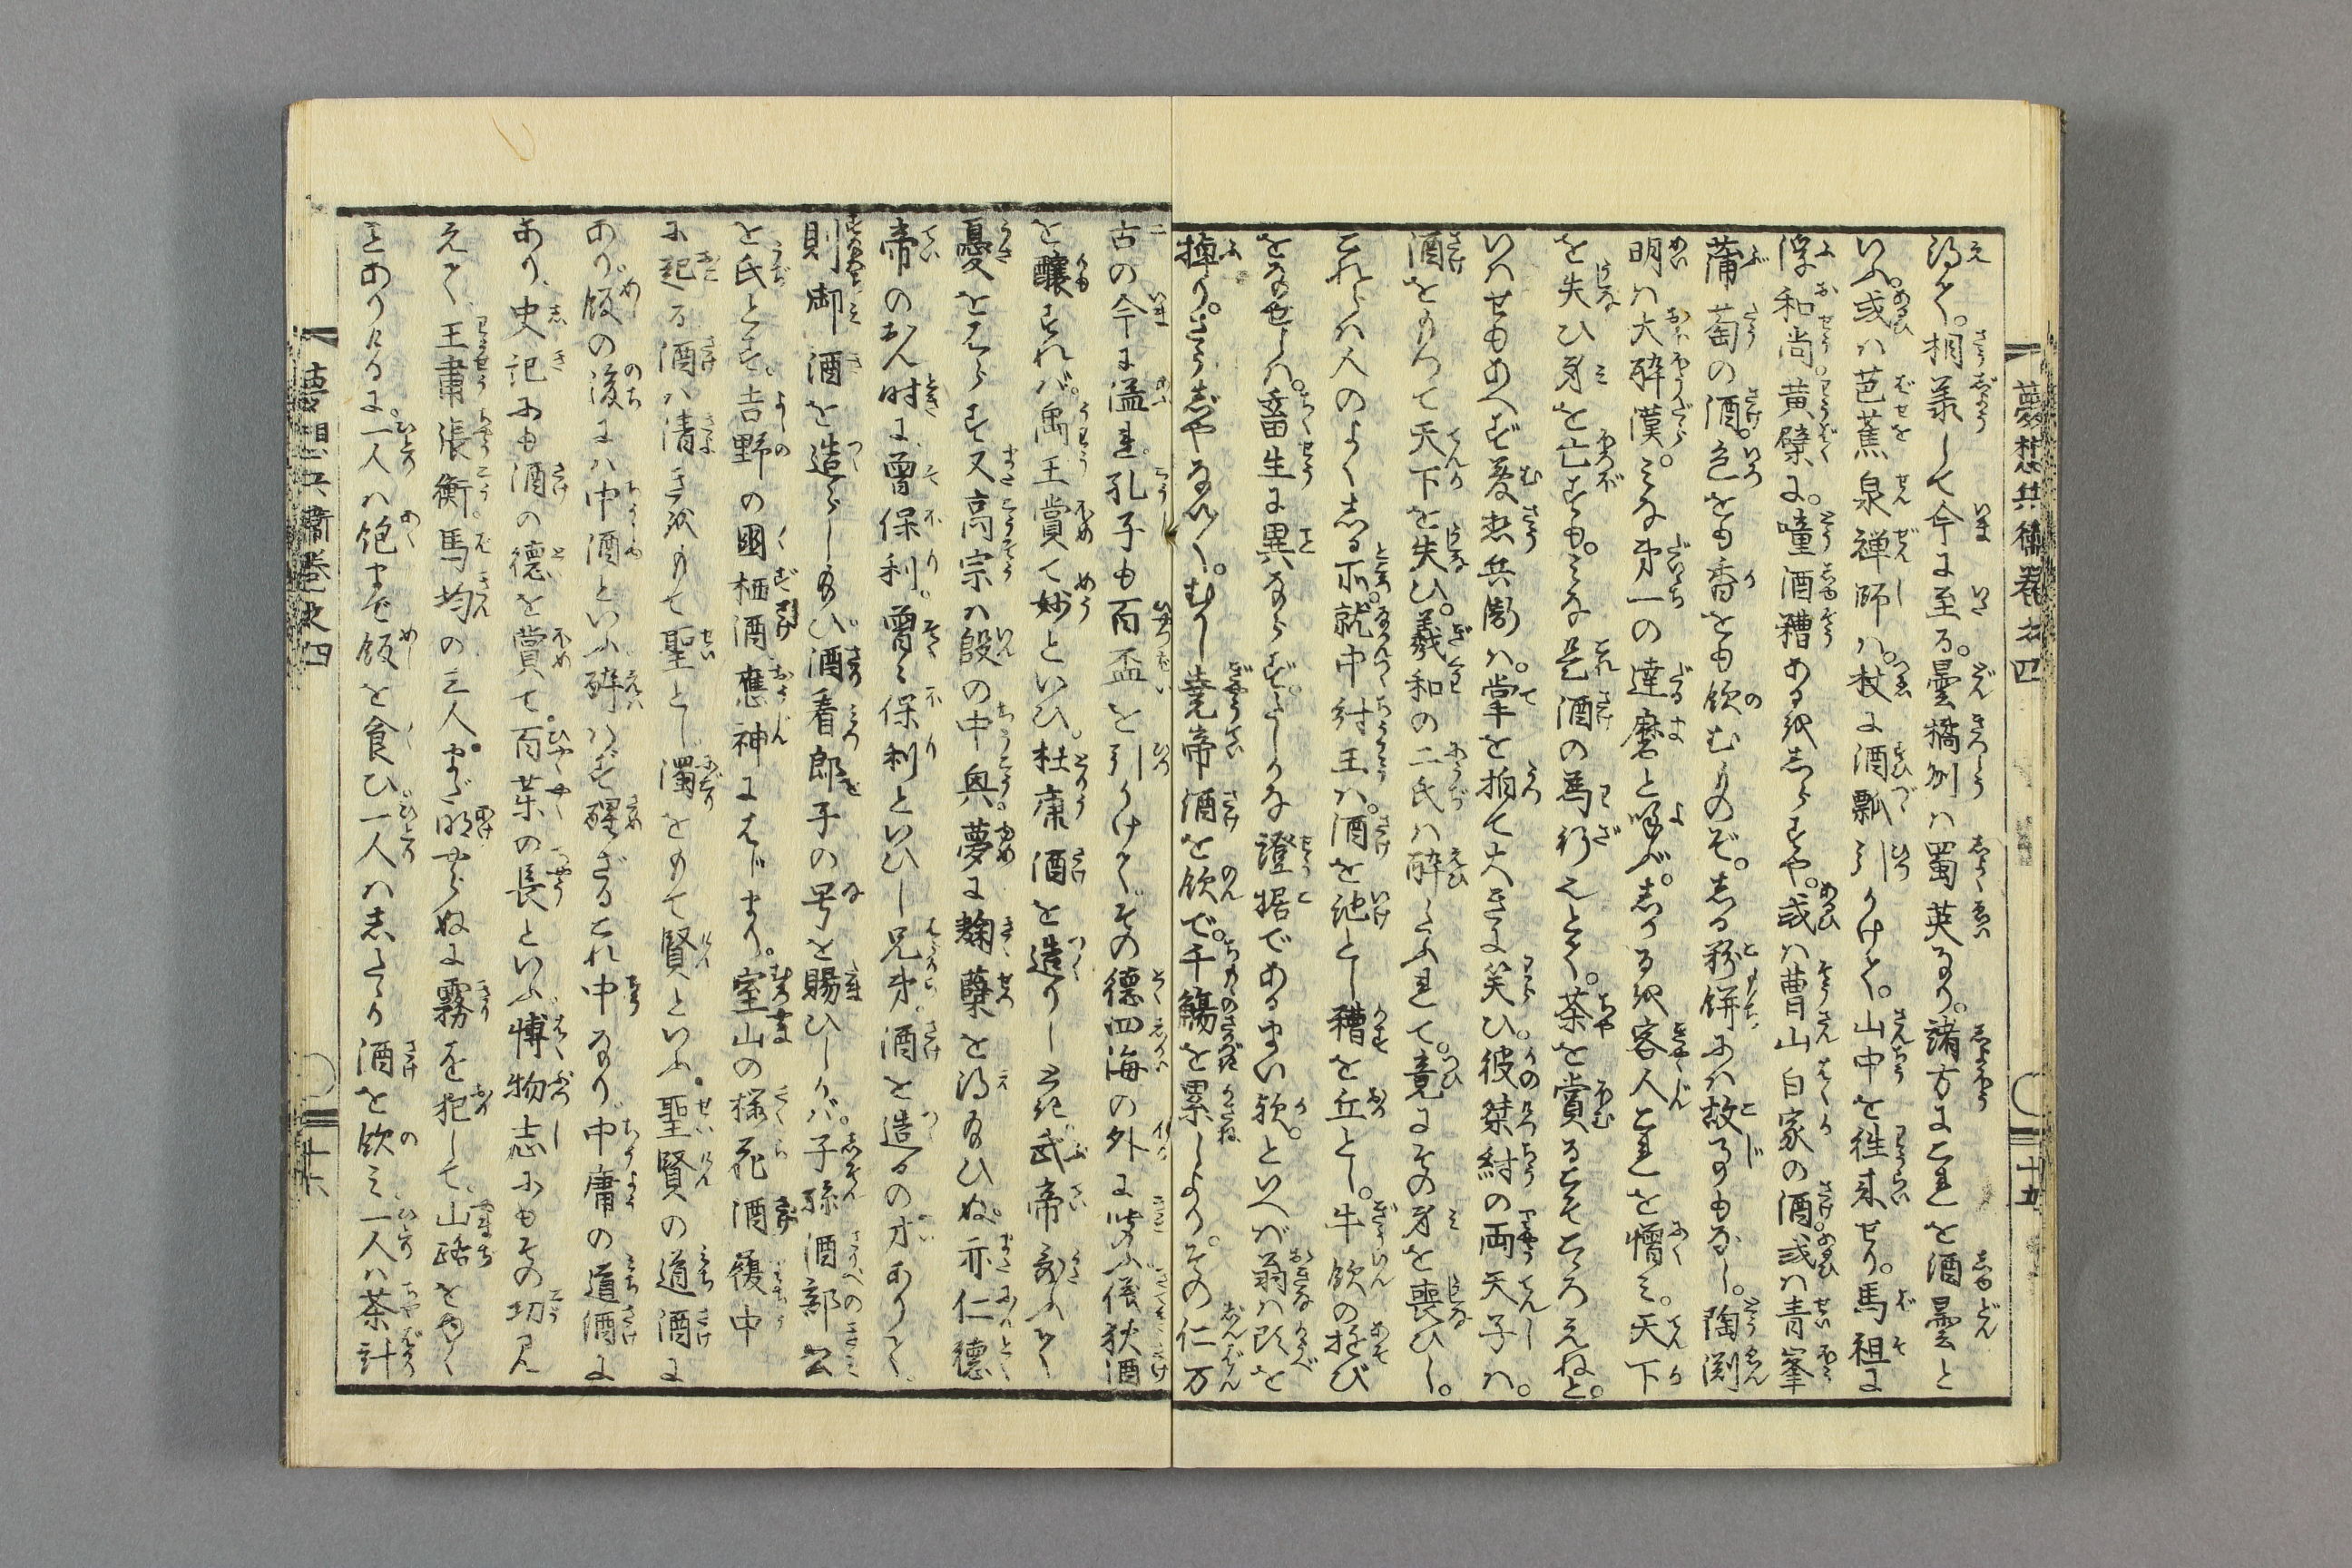 夢想兵衛巻之四
十五
得て。相羕して今に至る。曇橘州は蜀英なり。諸方にこれを酒曇と
いふ。或は芭蕉泉禅師は。杖に酒瓢引かけて。山中を徃来せり。馬祖に
浮和尚。黄檗に。噇酒糟あるをしらずや。或は曹山白家の酒。或は青峯
蒲萄の酒。色をも香をも飲むものぞ。しる粉餅には故事もなし。陶渕
明は大酔漢。みな第一の達磨と呼ぶ。しかるを客人これを憎み。天下
を失ひ身を亡すも。みな是酒の為行えとて。茶を賞るこそこゝろえねと。
いはせもあへず夢想兵衛は。掌を拍て大きに笑ひ。彼桀紂の両天子は。
酒をもつて天下を失ひ。羲和の二氏は酔たふれて。竟にその身を喪ひし。
これらは人のよくしる所。就中紂王は。酒を池とし糟を丘とし。牛飲の遊び
をなせしは。畜生に異ならず。たしかな證据であるまい歟。といへば翁は頭を
掉り。さうじやない〳〵。むかし堯帝酒を飲で。千觴を累しより。その仁万
古の今に溢れ。孔子も百盃を引かけてぞその徳四海の外に皆ふ儀狄酒
を醸すれば。禹王賞て妙といひ。杜康酒を造りしこそ武帝歌ふて
憂をわするゝ又高宗は殷の中興。夢に麹蘖を得給ひぬ。亦仁徳
帝のおん時に。曽保利。曽々保利といひし兄弟。酒を造るの才ありて。
則御酒を造らし給ひ。酒看郎子の号を賜ひしかば。子孫酒部公
を氏とす。吉野の国栖酒。應神にはじまり。室山の桜花酒履中
に起る。酒は清きをもて聖とし濁をもて賢といふ。聖賢の道酒に
あり。飯の後には中酒といふ酔はず醒ざるこれ中なり。中庸の道酒に
あり。史記にも酒の徳を賞て。百薬の長といふ。博物志にもその功見
えて。王肅張衡。馬均の三人。まだ明やらぬに霧を犯して。山路をゆく
ことありけるに。一人は飽まで飯を食ひ。一人はしたゝか酒を飲み。一人は茶計
夢想兵衛巻之四
十六